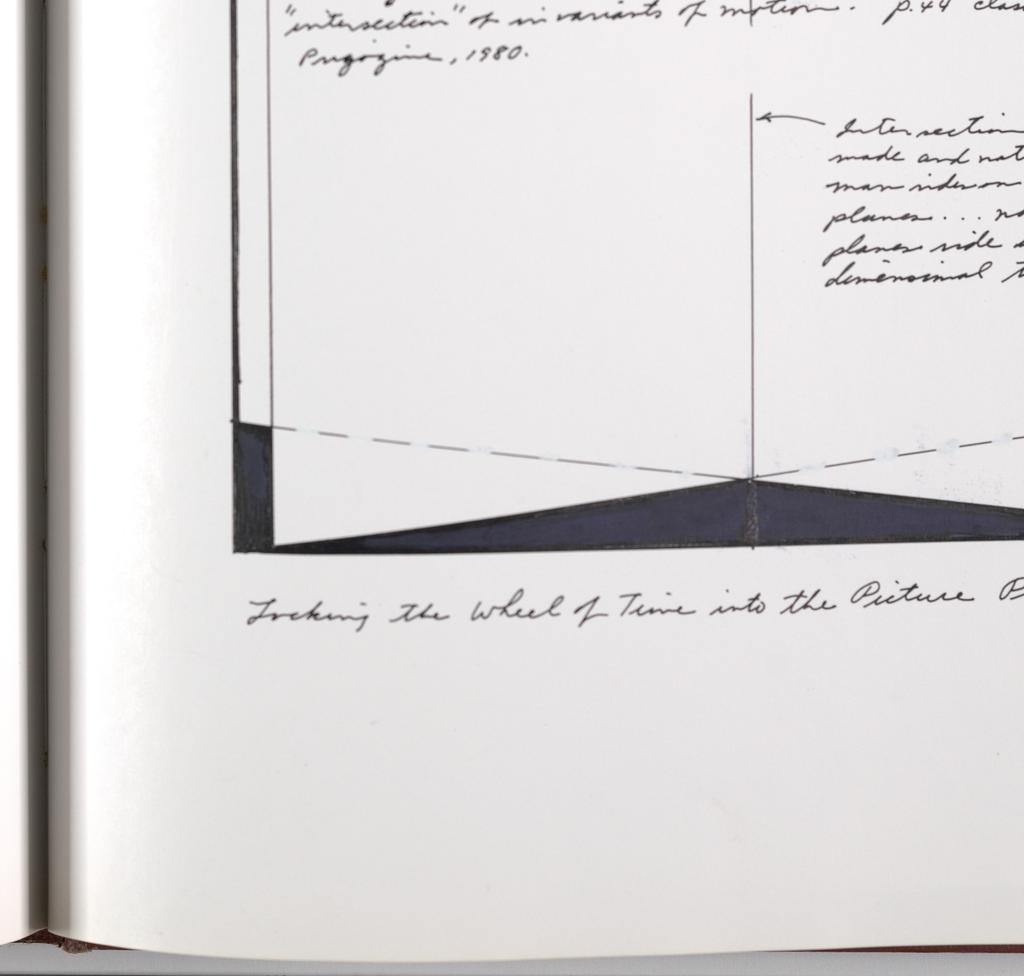 "intersection" of invariants of motion. p.44
Prigogine, 1980.
Intersection
made and nat
man rides on
planes... no
planes ride
dimensional t
Locking the Wheel of Time into the Picture P